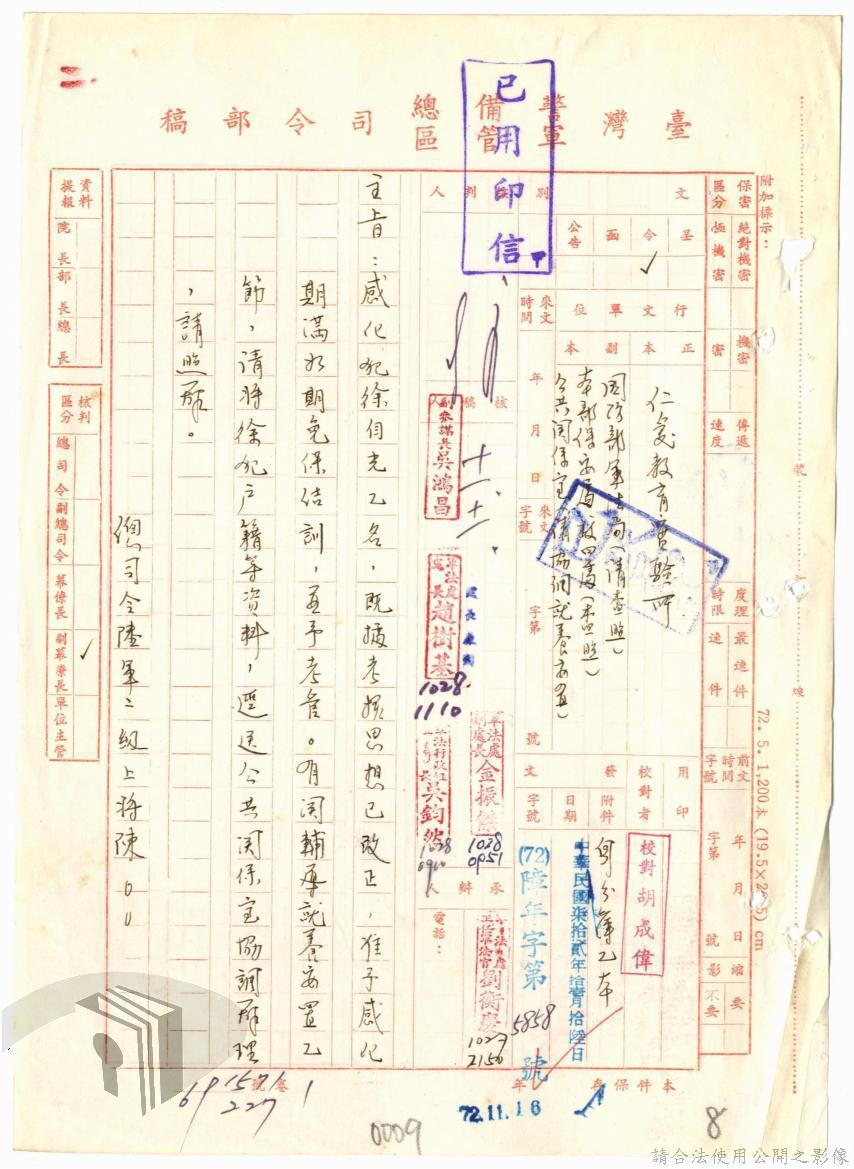 臺灣警備總司令部稿
軍管區
已用印信
附加標示：
保密區分
絕對機密
極機密
機密
密
傳遞速度
處理時限
最速件
速件
前文時間字號
年月日
字第號
縮影
要
不要
72.5.1,200本(19.5×26.5)cm
裝
線
文別
呈
令
✓
函
公告
行文單位
正本
仁愛教育實驗所
副本
國防部軍法局(請查照)
本部保安處
公共關係室(請協調就養安置)
來文時間
年月日
來文字號
字第號
用印
校對者
校對胡成偉
發文
附件
身分簿乙本
日期
中華民國柒拾貳年拾壹月拾陸日
字號
(72)障年字第5858號
判人
核稿人
副參謀長吳鴻昌
軍法處處長趙樹基
1028
1110
軍法處副處長金振傑
1028
0951
吳鈞然
1028
承辦人
劉衡慶
1027
2150
電話：
主旨：感化犯徐自光乙名，既據考核思想已改正，准予感化
期滿如期免保結訓，並予考管。有關輔導就養安置乙
節，請將徐犯戶籍等資料，逕送公共關係室協調辦理
，請照辦。
總司令陸軍二級上將陳○○
資料提報
院長
部長
總長
核判區分
總司令
副總司令
幕僚長
副幕僚長
✓
單位主管
本件保存年
72.11.16
卷號
1571
227
1
0009
8
請合法使用公開之影像